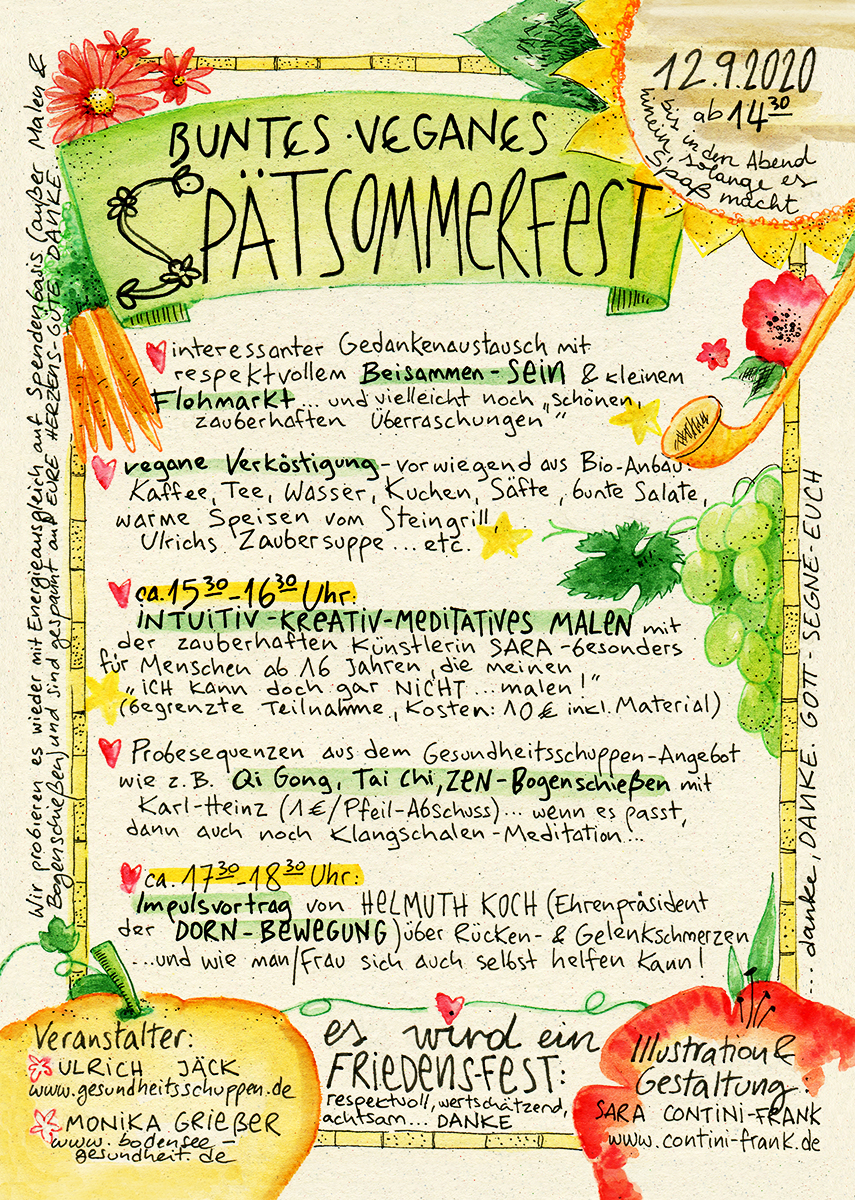 12.9.2020
ab 14³⁰
bis in den Abend
hinein, solange es
Spaß macht
BUNTES · VEGANES
SPÄTSOMMERFEST
interessanter Gedankenaustausch mit
respektvollem Beisammen-Sein & kleinem
Flohmarkt... und vielleicht noch „schönen,
zauberhaften Überraschungen"
vegane Verköstigung - vorwiegend aus Bio-Anbau:
Kaffee, Tee, Wasser, Kuchen, Säfte, bunte Salate,
warme Speisen vom Steingrill,
Ulrichs Zaubersuppe ... etc.
ca. 15³⁰-16³⁰ Uhr:
INTUITIV-KREATIV-MEDITATIVES MALEN mit
der zauberhaften Künstlerin SARA - besonders
für Menschen ab 16 Jahren, die meinen
„ICH kann doch gar NICHT ... malen!"
(begrenzte Teilnahme, Kosten: 10 € inkl. Material)
Probesequenzen aus dem Gesundheitsschuppen-Angebot
wie z.B. Qi Gong, Tai Chi, ZEN-Bogenschießen mit
Karl-Heinz (1 €/Pfeil-Abschuss)... wenn es passt,
dann auch noch Klangschalen-Meditation...
ca. 17³⁰-18³⁰ Uhr:
Impulsvortrag von HELMUTH KOCH (Ehrenpräsident
der DORN-BEWEGUNG) über Rücken- & Gelenkschmerzen
...und wie man/frau sich auch selbst helfen kann!
Wir probieren es wieder mit Energieausgleich auf Spendenbasis (außer Malen &
Bogenschießen) und sind gespannt auf EURE HERZENS-GUTE DANKE
... danke, DANKE. GOTT - SEGNE - EUCH
Veranstalter:
ULRICH JÄCK
www.gesundheitsschuppen.de
MONIKA GRIEßER
www.bodensee-
gesundheit.de
es wird ein
FRIEDENS-FEST:
respektvoll, wertschätzend,
achtsam... DANKE
Illustration &
Gestaltung:
SARA CONTINI-FRANK
www.contini-frank.de